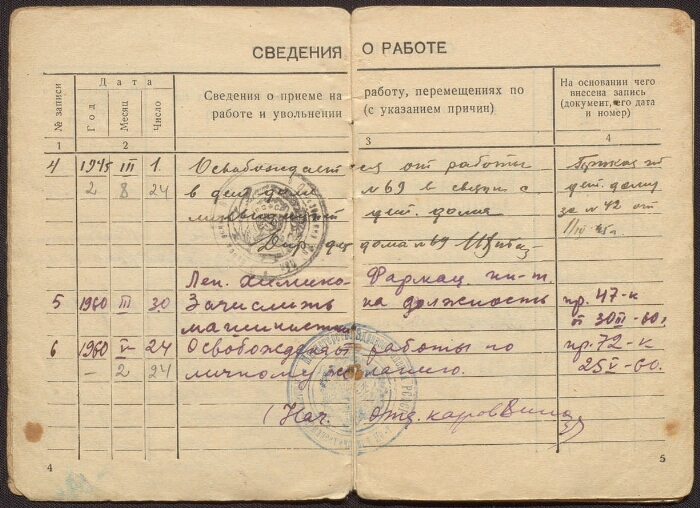 СВЕДЕНИЯ О РАБОТЕ
№ записи
Дата
Год
Месяц
Число
Сведения о приеме на работу, перемещениях по
работе и увольнении (с указанием причин)
На основании чего
внесена запись
(документ, его дата
и номер)
1 2 3 4
4 1945 III 1 Освобождается от работы
2 8 24 в дет. доме №69 в связи с
дет. дома
за №42 от
Дир. дет дома №69
Лен. Химико-Фармац. ин-т.
5 1960 III 30 Зачислить на должность пр. 47-к
машинистки от 30III-60г.
6 1960 V 24 Освобождена от работы по пр. 72-к
— 2 24 личному желанию. 25V-60.
(Нач. отд. кадров
4
5